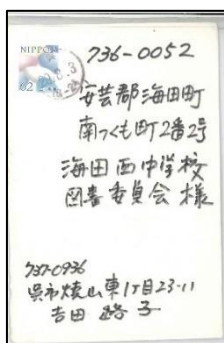 NIPPON
62
736-0052
安芸郡海田町
南つくも町2番2号
海田西中学校
図書委員会 様
737-0936
呉市焼山東1丁目23-11
吉田 路子